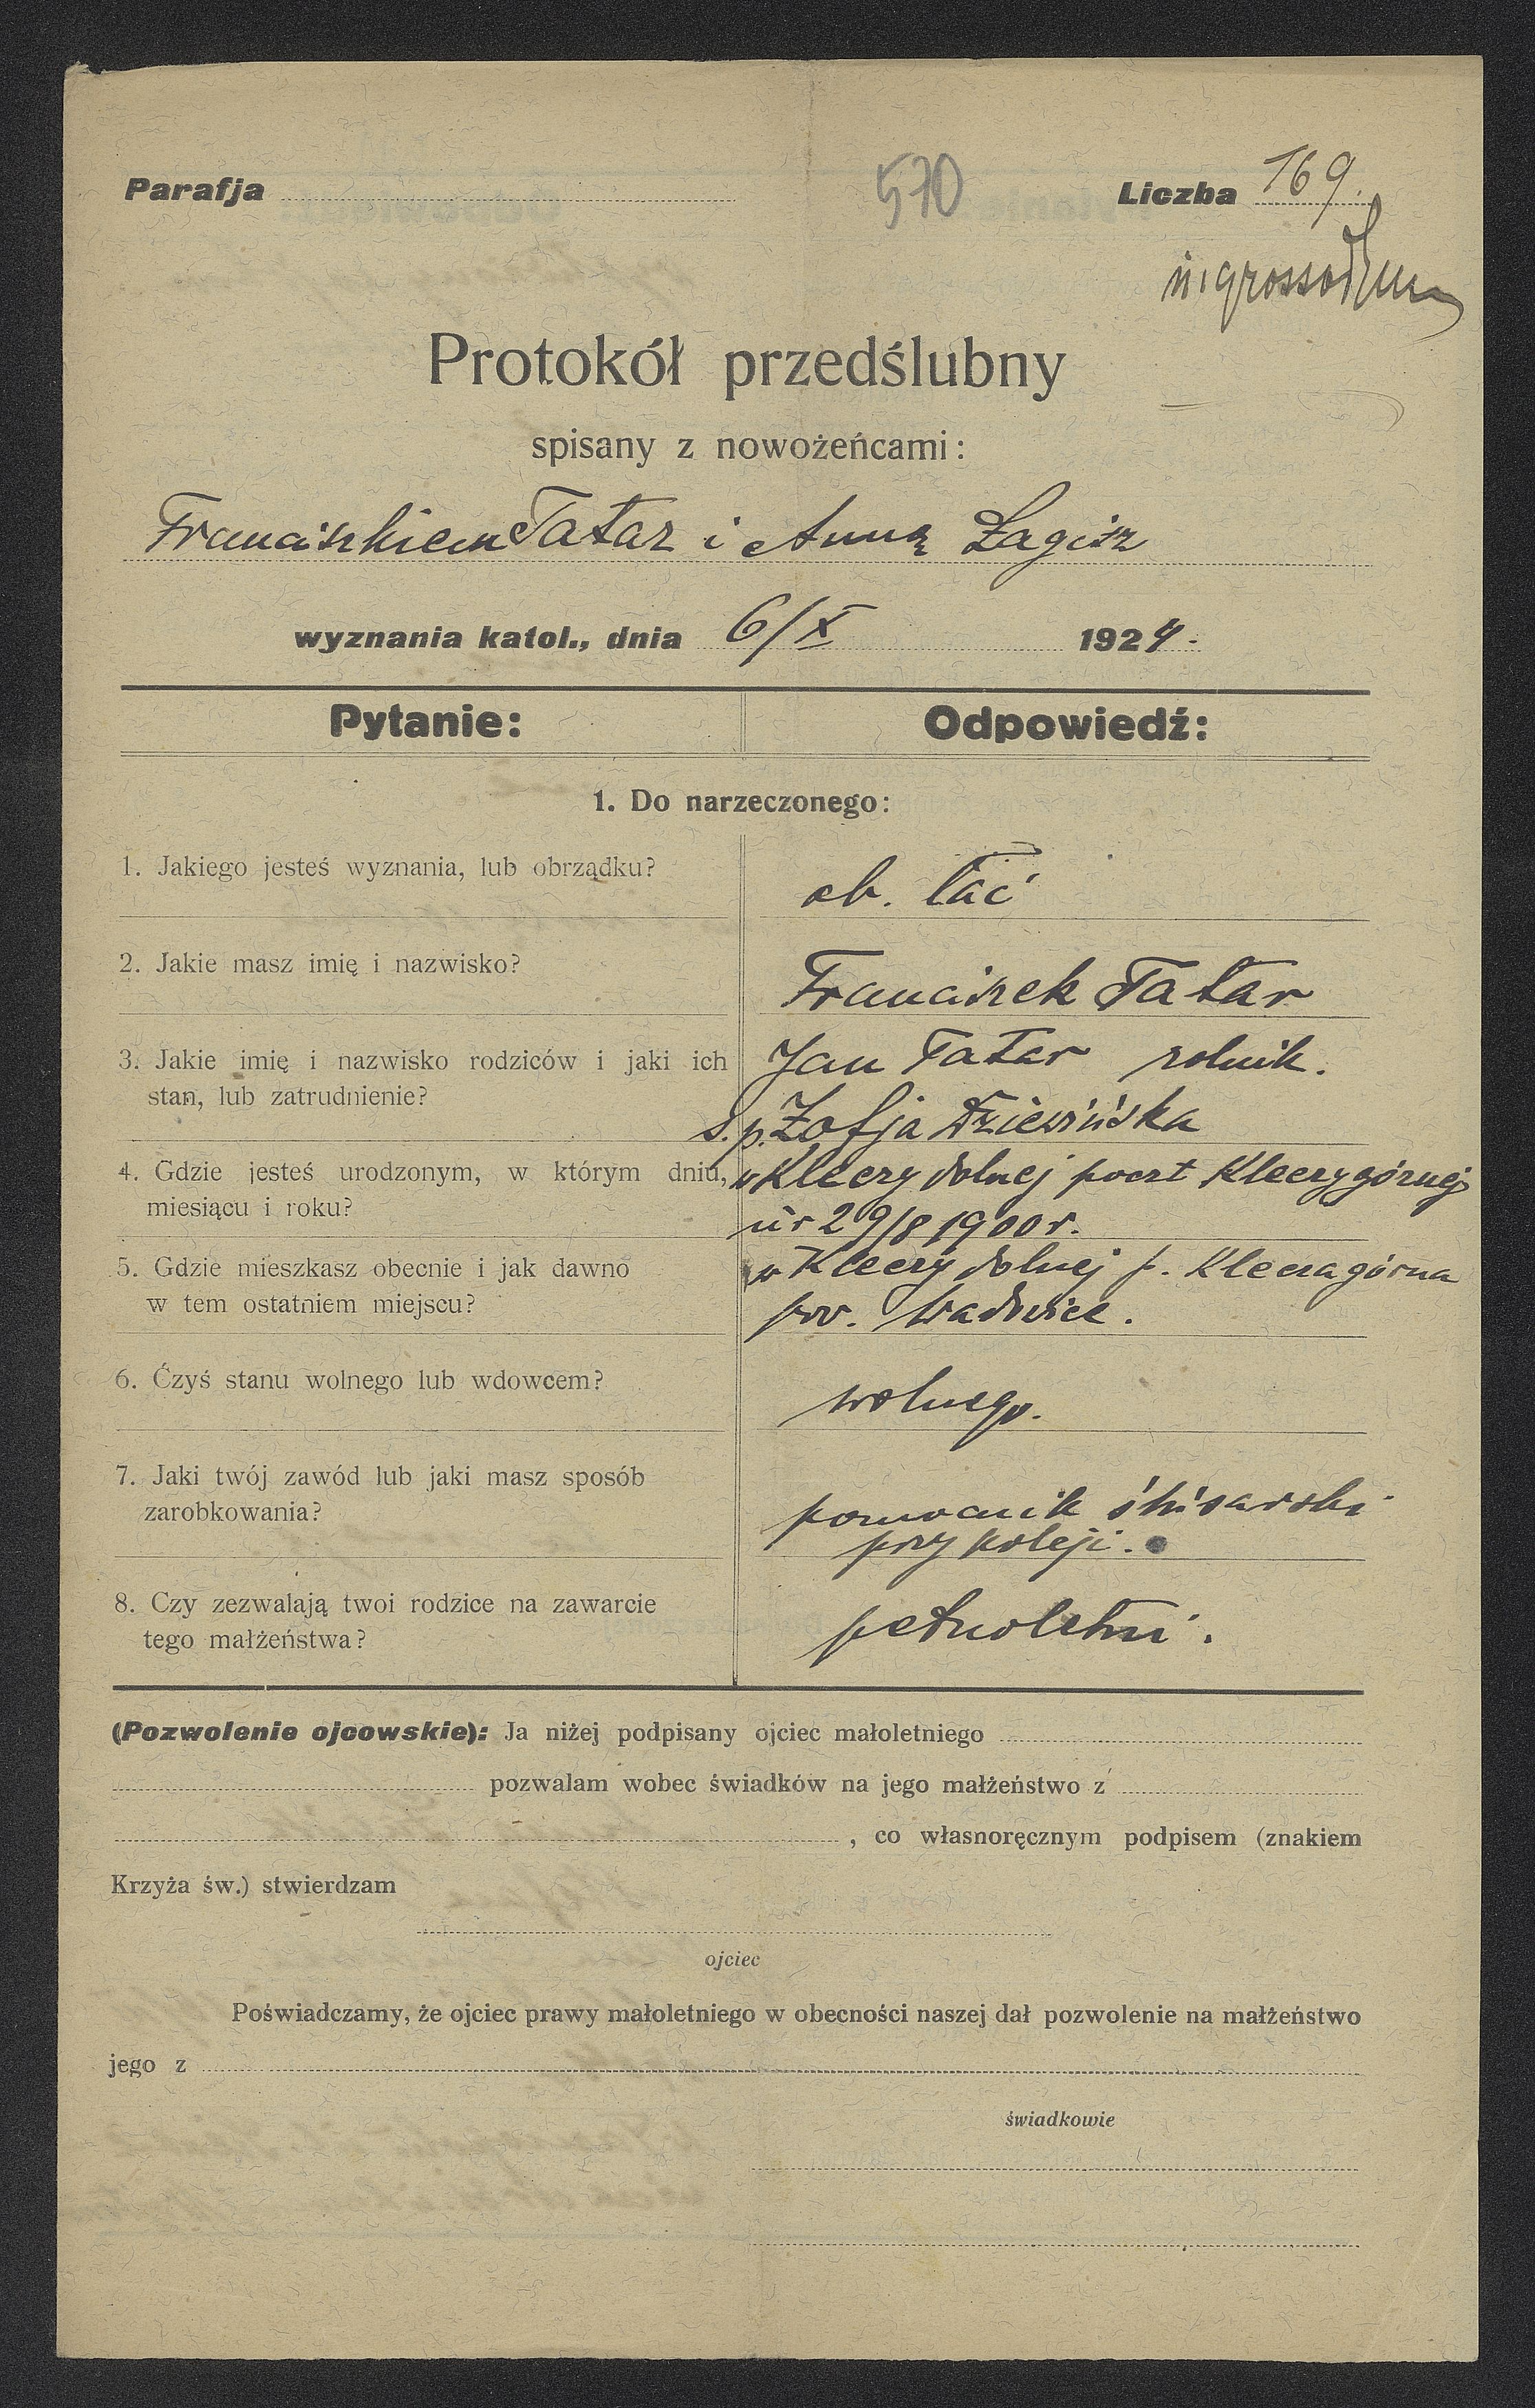 Parafja
570
Liczba 169.
Protokół przedślubny
spisany z nowożeńcami:
Franciszkiem Tatar i Anną Łagisz
wyznania katol., dnia 6/X 1924.
Pytanie: Odpowiedź:
1. Do narzeczonego:
1. Jakiego jesteś wyznania, lub obrządku?
ob. łać
2. Jakie masz imię i nazwisko?
Franciszek Tatar
3. Jakie imię i nazwisko rodziców i jaki ich
stan, lub zatrudnienie?
Jan Tatar rolnik.
ś.p. Zofja
4. Gdzie jesteś urodzonym, w którym dniu,
miesiącu i roku?
w Kleczy dolnej poczt Kleczy górnej
ur 29/8 1900 r.
5. Gdzie mieszkasz obecnie i jak dawno
w tem ostatniem miejscu?
w Kleczy dolnej p. Klecza górna
pow. Wadowice.
6. Czyś stanu wolnego lub wdowcem?
wolnego.
7. Jaki twój zawód lub jaki masz sposób
zarobkowania?
pomocnik ślusarski
przy koleji.
8. Czy zezwalają twoi rodzice na zawarcie
tego małżeństwa?
pełnoletni.
(Pozwolenie ojcowskie): Ja niżej podpisany ojciec małoletniego
pozwalam wobec świadków na jego małżeństwo z
, co własnoręcznym podpisem (znakiem
Krzyża św.) stwierdzam
ojciec
Poświadczamy, że ojciec prawy małoletniego w obecności naszej dał pozwolenie na małżeństwo
jego z
świadkowie